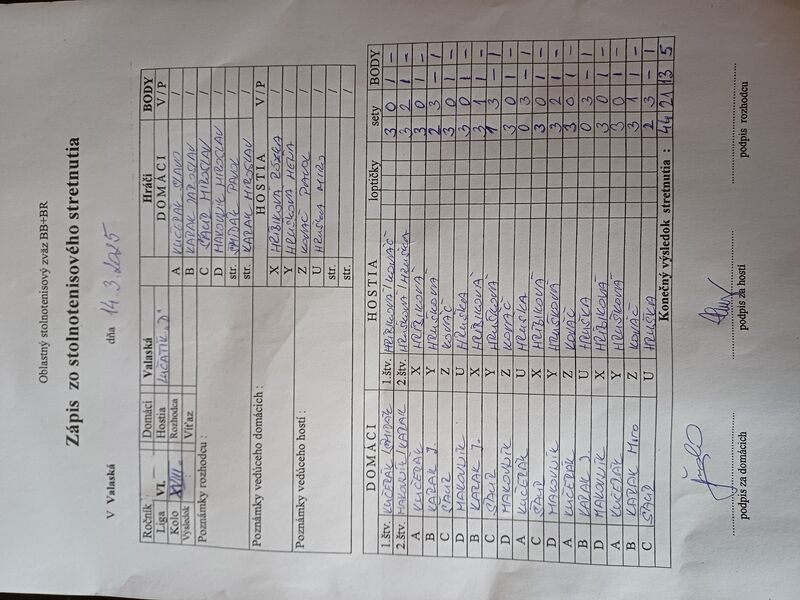 Oblastný stolnotenisový zväz BB+BR
Zápis zo stolnotenisového stretnutia
V Valaská dňa 14.3.2025
Ročník Domáci Valaská
Liga VI. Hostia LUČATÍN „D"
Kolo XVIII. Rozhodca
Výsledok Víťaz
Poznámky rozhodcu :
Poznámky vedúceho domácich :
Poznámky vedúceho hostí :
Hráči BODY
DOMÁCI V/P
A KUČERÁK SLAVO /
B KARAK JAROSLAV /
C MIROSLAV /
D MAKOVNÍK MIROSLAV /
str. ŠMIDÁK PAVOL /
str. KARAK MIROSLAV /
HOSTIA V/P
X HRÍBIKOVÁ /
Y HRUŠKOVÁ /
Z KOVÁČ PAVOL /
U HRUŠKA MIRO /
str. /
str. /
DOMÁCI HOSTIA loptičky sety BODY
1.štv. KUČERÁK/ŠMIDÁK 1.štv. HRÍBIKOVÁ/KOVÁČ 3 0 1 -
2.štv. MAKOVNÍK/KARAK 2.štv. HRUŠKOVÁ/HRUŠKA 3 2 1 -
A KUČERÁK X HRÍBIKOVÁ 3 0 1 -
B KARAK J. Y HRUŠKOVÁ 2 3 - 1
C Z KOVÁČ 3 0 1 -
D MAKOVNÍK U HRUŠKA 3 0 1 -
B KARAK J. X HRÍBIKOVÁ 3 1 1 -
C Y HRUŠKOVÁ 1 3 - 1
D MAKOVNÍK Z KOVÁČ 3 0 1 -
A KUČERÁK U HRUŠKA 0 3 - 1
C X HRÍBIKOVÁ 3 0 1 -
D MAKOVNÍK Y HRUŠKOVÁ 3 2 1 -
A KUČERÁK Z KOVÁČ 3 0 1 -
B KARAK J. U HRUŠKA 0 3 - 1
D MAKOVNÍK X HRÍBIKOVÁ 3 0 1 -
A KUČERÁK Y HRUŠKOVÁ 3 0 1 -
B KARAK MIRO Z KOVÁČ 3 1 1 -
C U HRUŠKA 2 3 - 1
Konečný výsledok stretnutia : 44 21 13 5
podpis za domácich podpis za hostí podpis rozhodcu